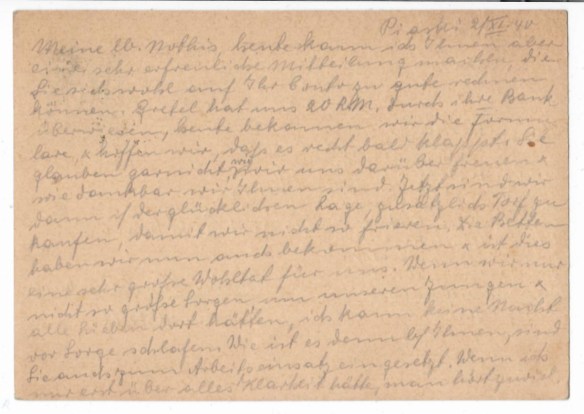 Piaski 2/XI. 40
Meine lb. Nothis, heute kann ich Ihnen aber
eine sehr erfreuliche Mitteilung machen, die
Sie sich wohl auf Ihr Conto zu gute rechnen
können. Gretel hat uns 20 RM. durch ihre Bank
überwiesen, heute bekamen wir die Formu
lare, & hoffen wir, dass es recht bald klappt. Sie
glauben garnicht wie wir uns darüber freuen &
wie dankbar wir Ihnen sind. Jetzt sind wir
dann i/ der glücklichen Lage zusätzlich Torf zu
kaufen, damit wir nicht so frieren. Die Betten
haben wir nun auch bekommen & ist dies
eine sehr große Wohltat für uns. Wenn wir nur
nicht so große Sorgen um unseren Jungen &
alle Lieben dort hätten, ich kann keine Nacht
vor Sorge schlafen. Wie ist es denn b/ Ihnen, sind
Sie auch zum Arbeitseinsatz eingesetzt. Wenn ich
nur erst über alles Klarheit hätte, man hört zuviel,